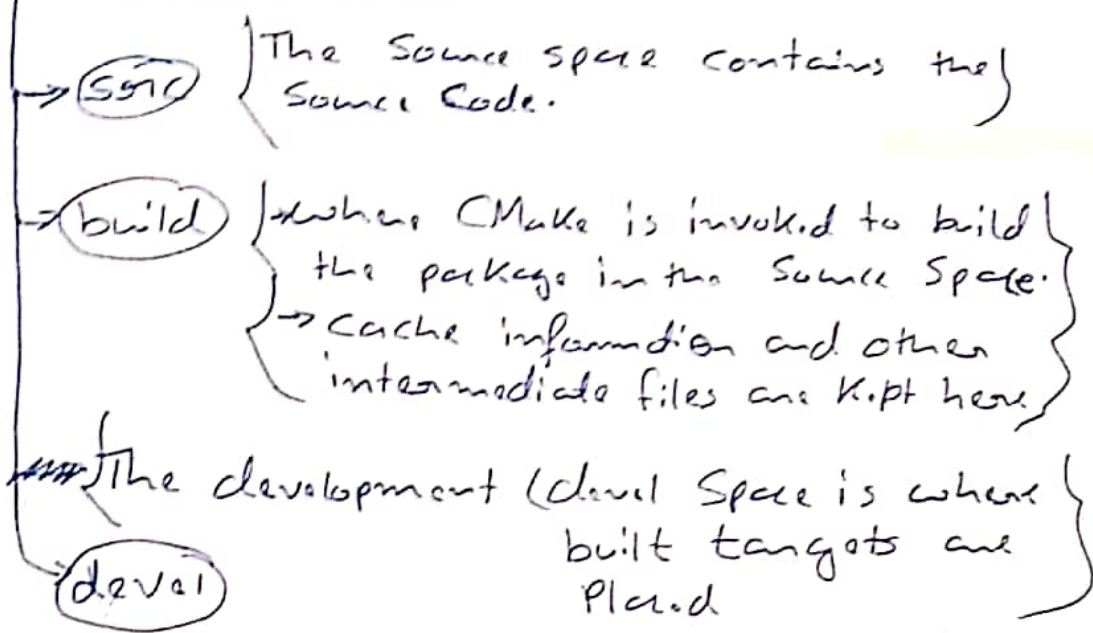 The Source space contains the
src
Source Code.
build
→ where CMake is invoked to build
the package in the Source Space.
→ Cache information and other
intermediate files are kept here
The development (devel Space is where
built targets are
placed
devel